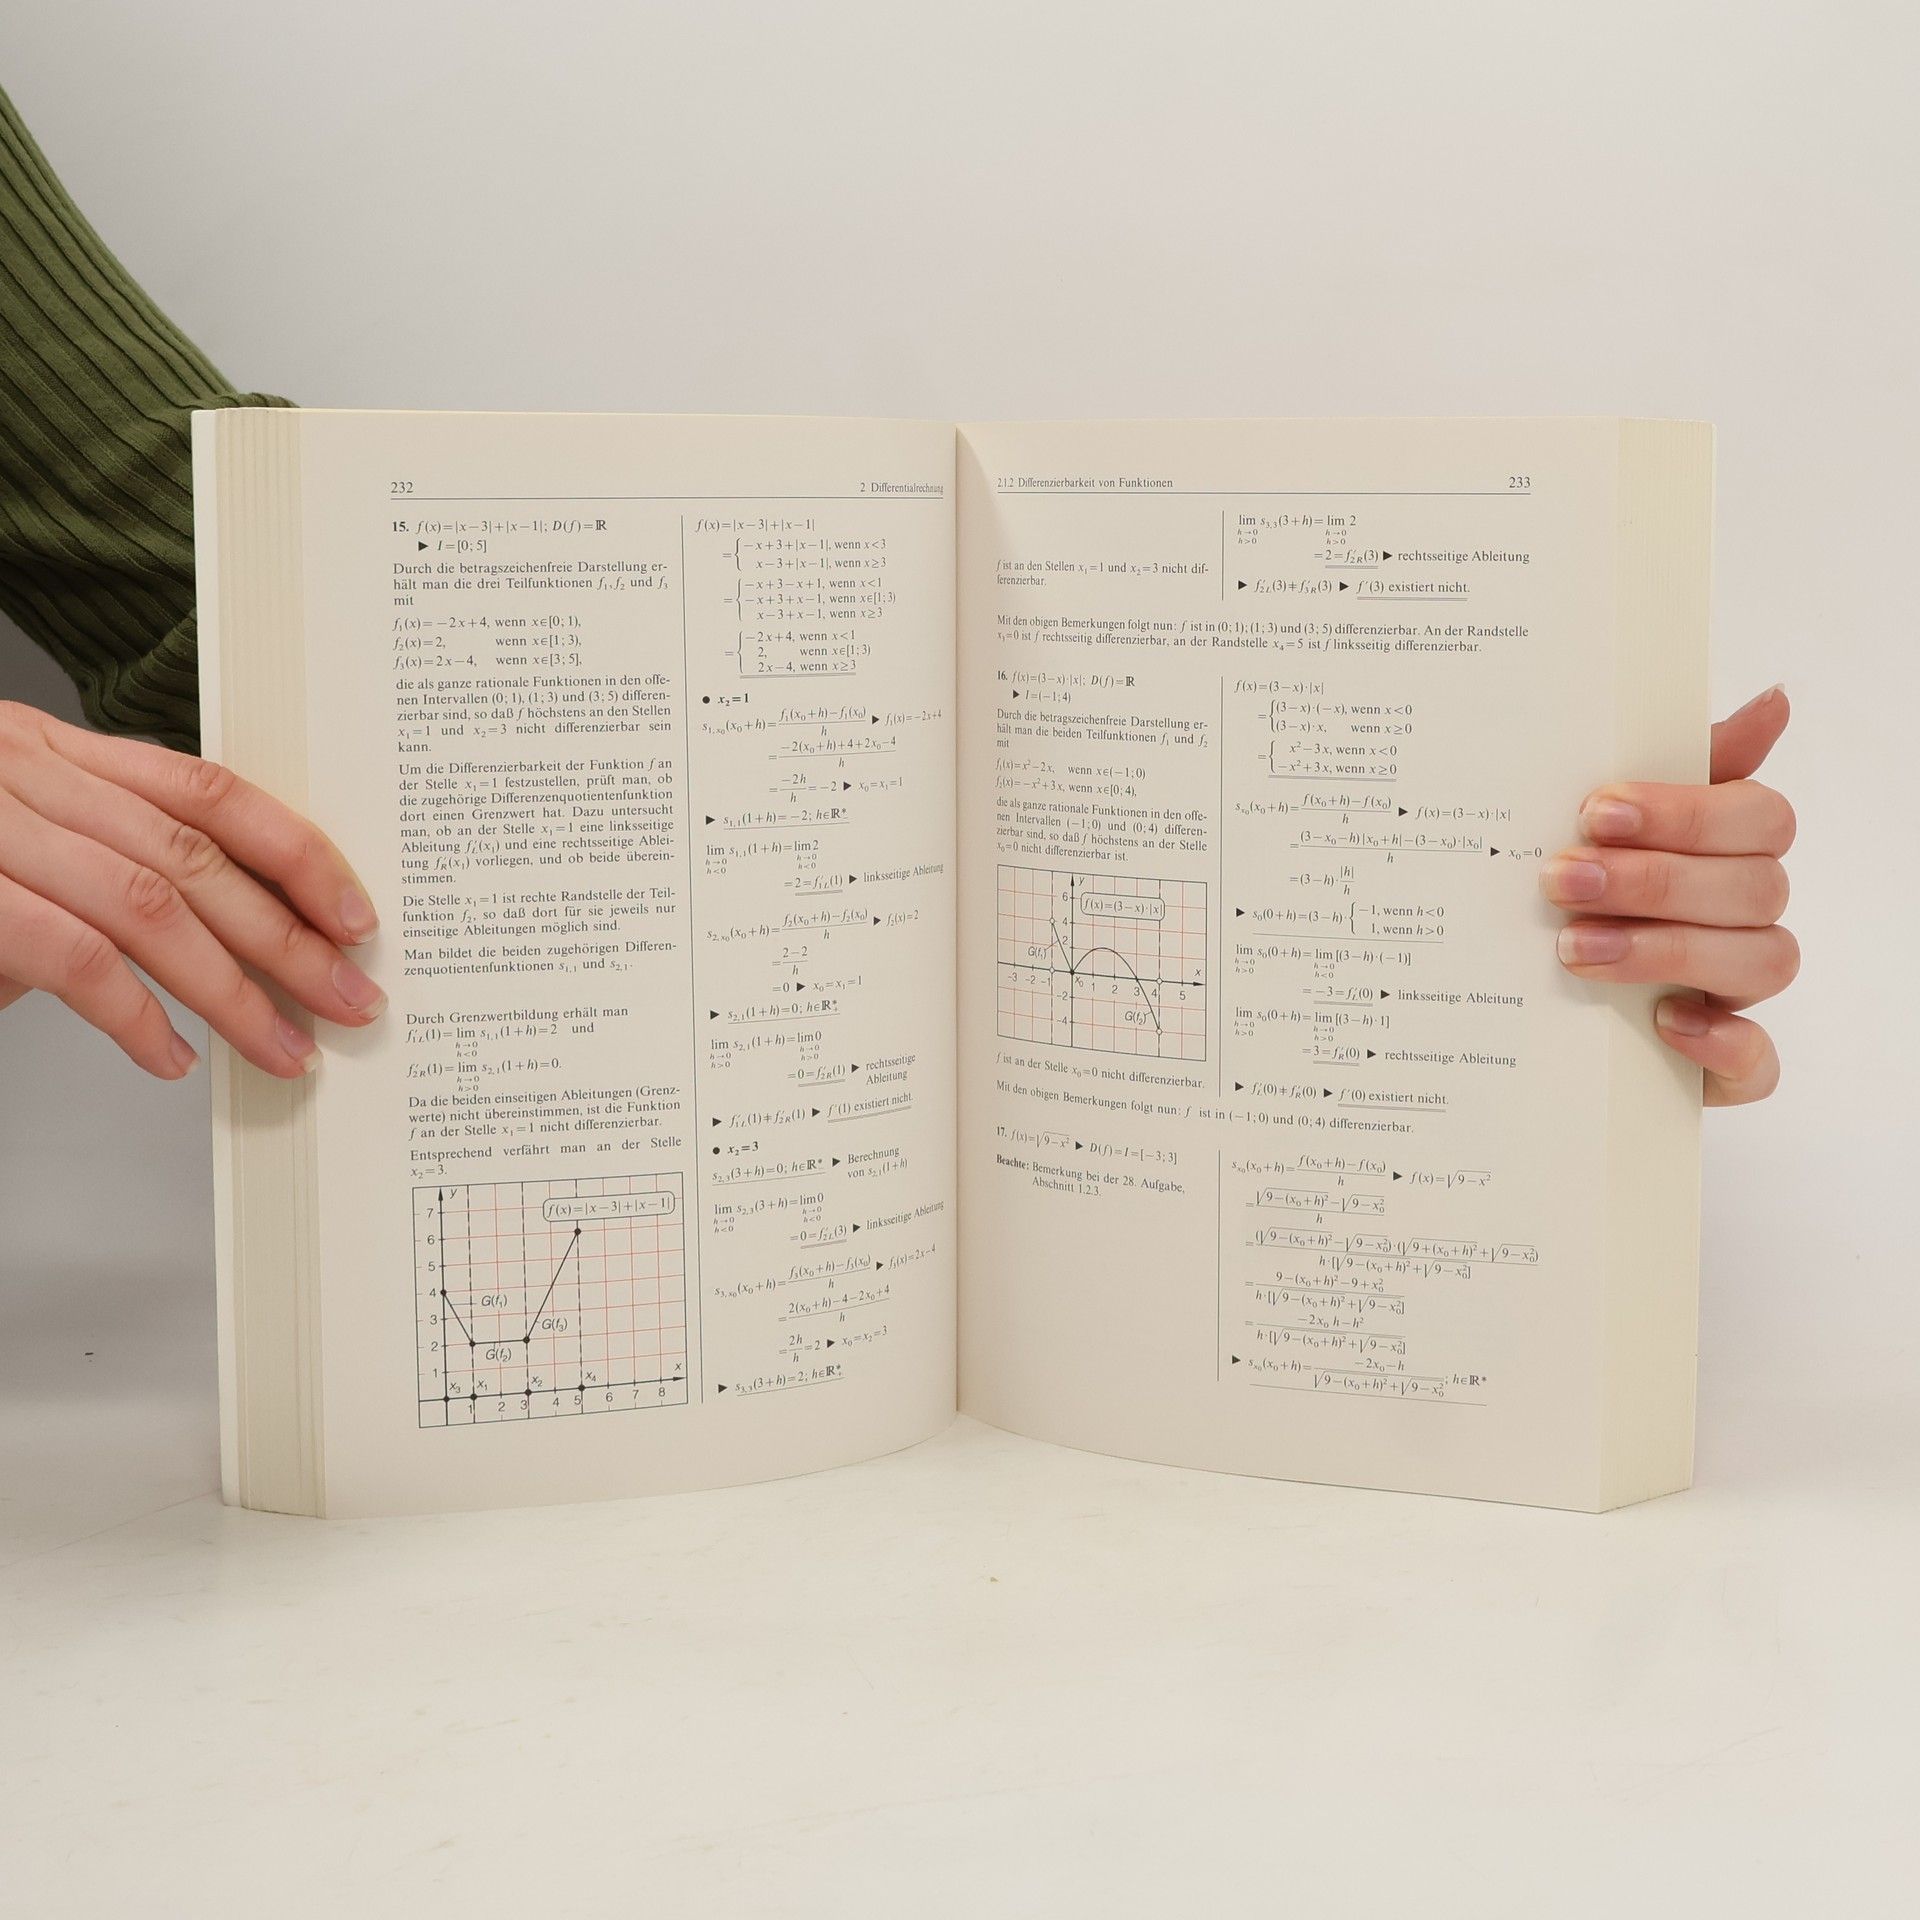 232
2 Differentialrechnung
15. f(x)=|x−3|+|x−1|; D(f)=ℝ
▶ I=[0; 5]
Durch die betragszeichenfreie Darstellung er-
hält man die drei Teilfunktionen f₁, f₂ und f₃
mit
f₁(x)=−2x+4, wenn x∈[0; 1),
f₂(x)=2, wenn x∈[1; 3),
f₃(x)=2x−4, wenn x∈[3; 5],
die als ganze rationale Funktionen in den offe-
nen Intervallen (0; 1), (1; 3) und (3; 5) differen-
zierbar sind, so daß f höchstens an den Stellen
x₁=1 und x₂=3 nicht differenzierbar sein
kann.
Um die Differenzierbarkeit der Funktion f an
der Stelle x₁=1 festzustellen, prüft man, ob
die zugehörige Differenzenquotientenfunktion
dort einen Grenzwert hat. Dazu untersucht
man, ob an der Stelle x₁=1 eine linksseitige
Ableitung f′_L(x₁) und eine rechtsseitige Ablei-
tung f′_R(x₁) vorliegen, und ob beide überein-
stimmen.
Die Stelle x₁=1 ist rechte Randstelle der Teil-
funktion f₂, so daß dort für sie jeweils nur
einseitige Ableitungen möglich sind.
Man bildet die beiden zugehörigen Differen-
zenquotientenfunktionen s₁,₁ und s₂,₁.
Durch Grenzwertbildung erhält man
f′₁L(1)=lim s₁,₁(1+h)=2 und
h→0
h<0
f′₂R(1)=lim s₂,₁(1+h)=0.
h→0
h>0
Da die beiden einseitigen Ableitungen (Grenz-
werte) nicht übereinstimmen, ist die Funktion
f an der Stelle x₁=1 nicht differenzierbar.
Entsprechend verfährt man an der Stelle
x₂=3.
y
f(x)=|x−3|+|x−1|
7
6
5
4
G(f₁)
3
G(f₃)
2
G(f₂)
1
x₃ x₁ x₂ x₄ x
1 2 3 4 5 6 7 8
f(x)=|x−3|+|x−1|
={−x+3+|x−1|, wenn x<3
x−3+|x−1|, wenn x≥3
={−x+3−x+1, wenn x<1
−x+3+x−1, wenn x∈[1; 3)
x−3+x−1, wenn x≥3
={−2x+4, wenn x<1
2, wenn x∈[1; 3)
2x−4, wenn x≥3
● x₂=1
s₁,x₀(x₀+h)=(f₁(x₀+h)−f₁(x₀))/h ▶ f₁(x)=−2x+4
=(−2(x₀+h)+4+2x₀−4)/h
=−2h/h=−2 ▶ x₀=x₁=1
▶ s₁,₁(1+h)=−2; h∈ℝ*₋
lim s₁,₁(1+h)=lim 2
h→0 h→0
h<0 h<0
=2=f′₁L(1) ▶ linksseitige Ableitung
s₂,x₀(x₀+h)=(f₂(x₀+h)−f₂(x₀))/h ▶ f₂(x)=2
=(2−2)/h
=0 ▶ x₀=x₁=1
▶ s₂,₁(1+h)=0; h∈ℝ*₊
lim s₂,₁(1+h)=lim 0
h→0 h→0
h>0 h>0
=0=f′₂R(1) ▶ rechtsseitige
Ableitung
▶ f′₁L(1)≠f′₂R(1) ▶ f′(1) existiert nicht.
● x₂=3
s₂,₃(3+h)=0; h∈ℝ*₋ ▶ Berechnung
von s₂,₁(1+h)
lim s₂,₃(3+h)=lim 0
h→0 h→0
h<0 h<0
=0=f′₂L(3) ▶ linksseitige Ableitung
s₃,x₀(x₀+h)=(f₃(x₀+h)−f₃(x₀))/h ▶ f₃(x)=2x−4
=(2(x₀+h)−4−2x₀+4)/h
=2h/h=2 ▶ x₀=x₂=3
▶ s₃,₃(3+h)=2; h∈ℝ*₊
2.1.2 Differenzierbarkeit von Funktionen
233
f ist an den Stellen x₁=1 und x₂=3 nicht dif-
ferenzierbar.
lim s₃,₃(3+h)=lim 2
h→0 h→0
h>0 h>0
=2=f′₂R(3) ▶ rechtsseitige Ableitung
▶ f′₂L(3)≠f′₃R(3) ▶ f′(3) existiert nicht.
Mit den obigen Bemerkungen folgt nun: f ist in (0; 1); (1; 3) und (3; 5) differenzierbar. An der Randstelle
x₃=0 ist f rechtsseitig differenzierbar, an der Randstelle x₄=5 ist f linksseitig differenzierbar.
16. f(x)=(3−x)·|x|; D(f)=ℝ
▶ I=(−1; 4)
Durch die betragszeichenfreie Darstellung er-
hält man die beiden Teilfunktionen f₁ und f₂
mit
f₁(x)=x²−2x, wenn x∈(−1; 0)
f₂(x)=−x²+3x, wenn x∈[0; 4),
die als ganze rationale Funktionen in den offe-
nen Intervallen (−1; 0) und (0; 4) differen-
zierbar sind, so daß f höchstens an der Stelle
x₀=0 nicht differenzierbar ist.
y
6
f(x)=(3−x)·|x|
4
2
G(f₁)
x
−3 −2 −1 x₀ 1 2 3 4 5
−2
G(f₂)
−4
f ist an der Stelle x₀=0 nicht differenzierbar.
f(x)=(3−x)·|x|
={(3−x)·(−x), wenn x<0
(3−x)·x, wenn x≥0
={x²−3x, wenn x<0
−x²+3x, wenn x≥0
sx₀(x₀+h)=(f(x₀+h)−f(x₀))/h ▶ f(x)=(3−x)·|x|
=((3−x₀−h)|x₀+h|−(3−x₀)·|x₀|)/h ▶ x₀=0
=(3−h)·|h|/h
▶ s₀(0+h)=(3−h)·{−1, wenn h<0
1, wenn h>0
lim s₀(0+h)=lim [(3−h)·(−1)]
h→0 h→0
h>0 h<0
=−3=f′_L(0) ▶ linksseitige Ableitung
lim s₀(0+h)=lim [(3−h)·1]
h→0 h→0
h>0 h>0
=3=f′_R(0) ▶ rechtsseitige Ableitung
▶ f′_L(0)≠f′_R(0) ▶ f′(0) existiert nicht.
Mit den obigen Bemerkungen folgt nun: f ist in (−1; 0) und (0; 4) differenzierbar.
17. f(x)=√(9−x²) ▶ D(f)=I=[−3; 3]
Beachte: Bemerkung bei der 28. Aufgabe,
Abschnitt 1.2.3.
sx₀(x₀+h)=(f(x₀+h)−f(x₀))/h ▶ f(x)=√(9−x²)
=(√(9−(x₀+h)²)−√(9−x₀²))/h
=(√(9−(x₀+h)²)−√(9−x₀²))·(√(9+(x₀+h)²)+√(9−x₀²))/(h·[√(9−(x₀+h)²)+√(9−x₀²)])
=(9−(x₀+h)²−9+x₀²)/(h·[√(9−(x₀+h)²)+√(9−x₀²)])
=(−2x₀h−h²)/(h·[√(9−(x₀+h)²)+√(9−x₀²)])
▶ sx₀(x₀+h)=(−2x₀−h)/(√(9−(x₀+h)²)+√(9−x₀²)); h∈ℝ*